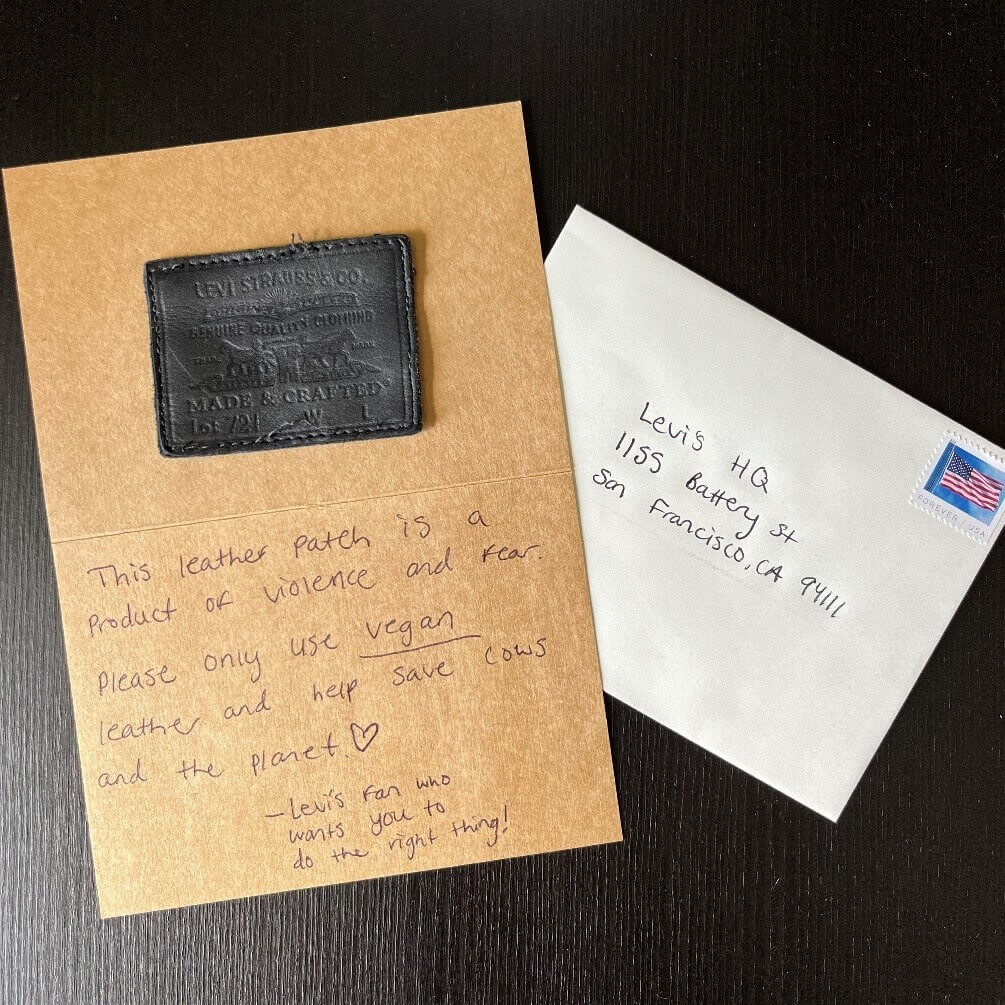 LEVI STRAUSS & CO.
GENUINE QUALITY CLOTHING
MADE & CRAFTED®
Lot 721 W L
This leather patch is a
product of violence and fear.
Please only use vegan
leather and help save cows
and the planet! ♡
-Levi's fan who
wants you to
do the right thing!
Levi's HQ
1155 Battery St
San Francisco, CA 94111
FOREVER / USA